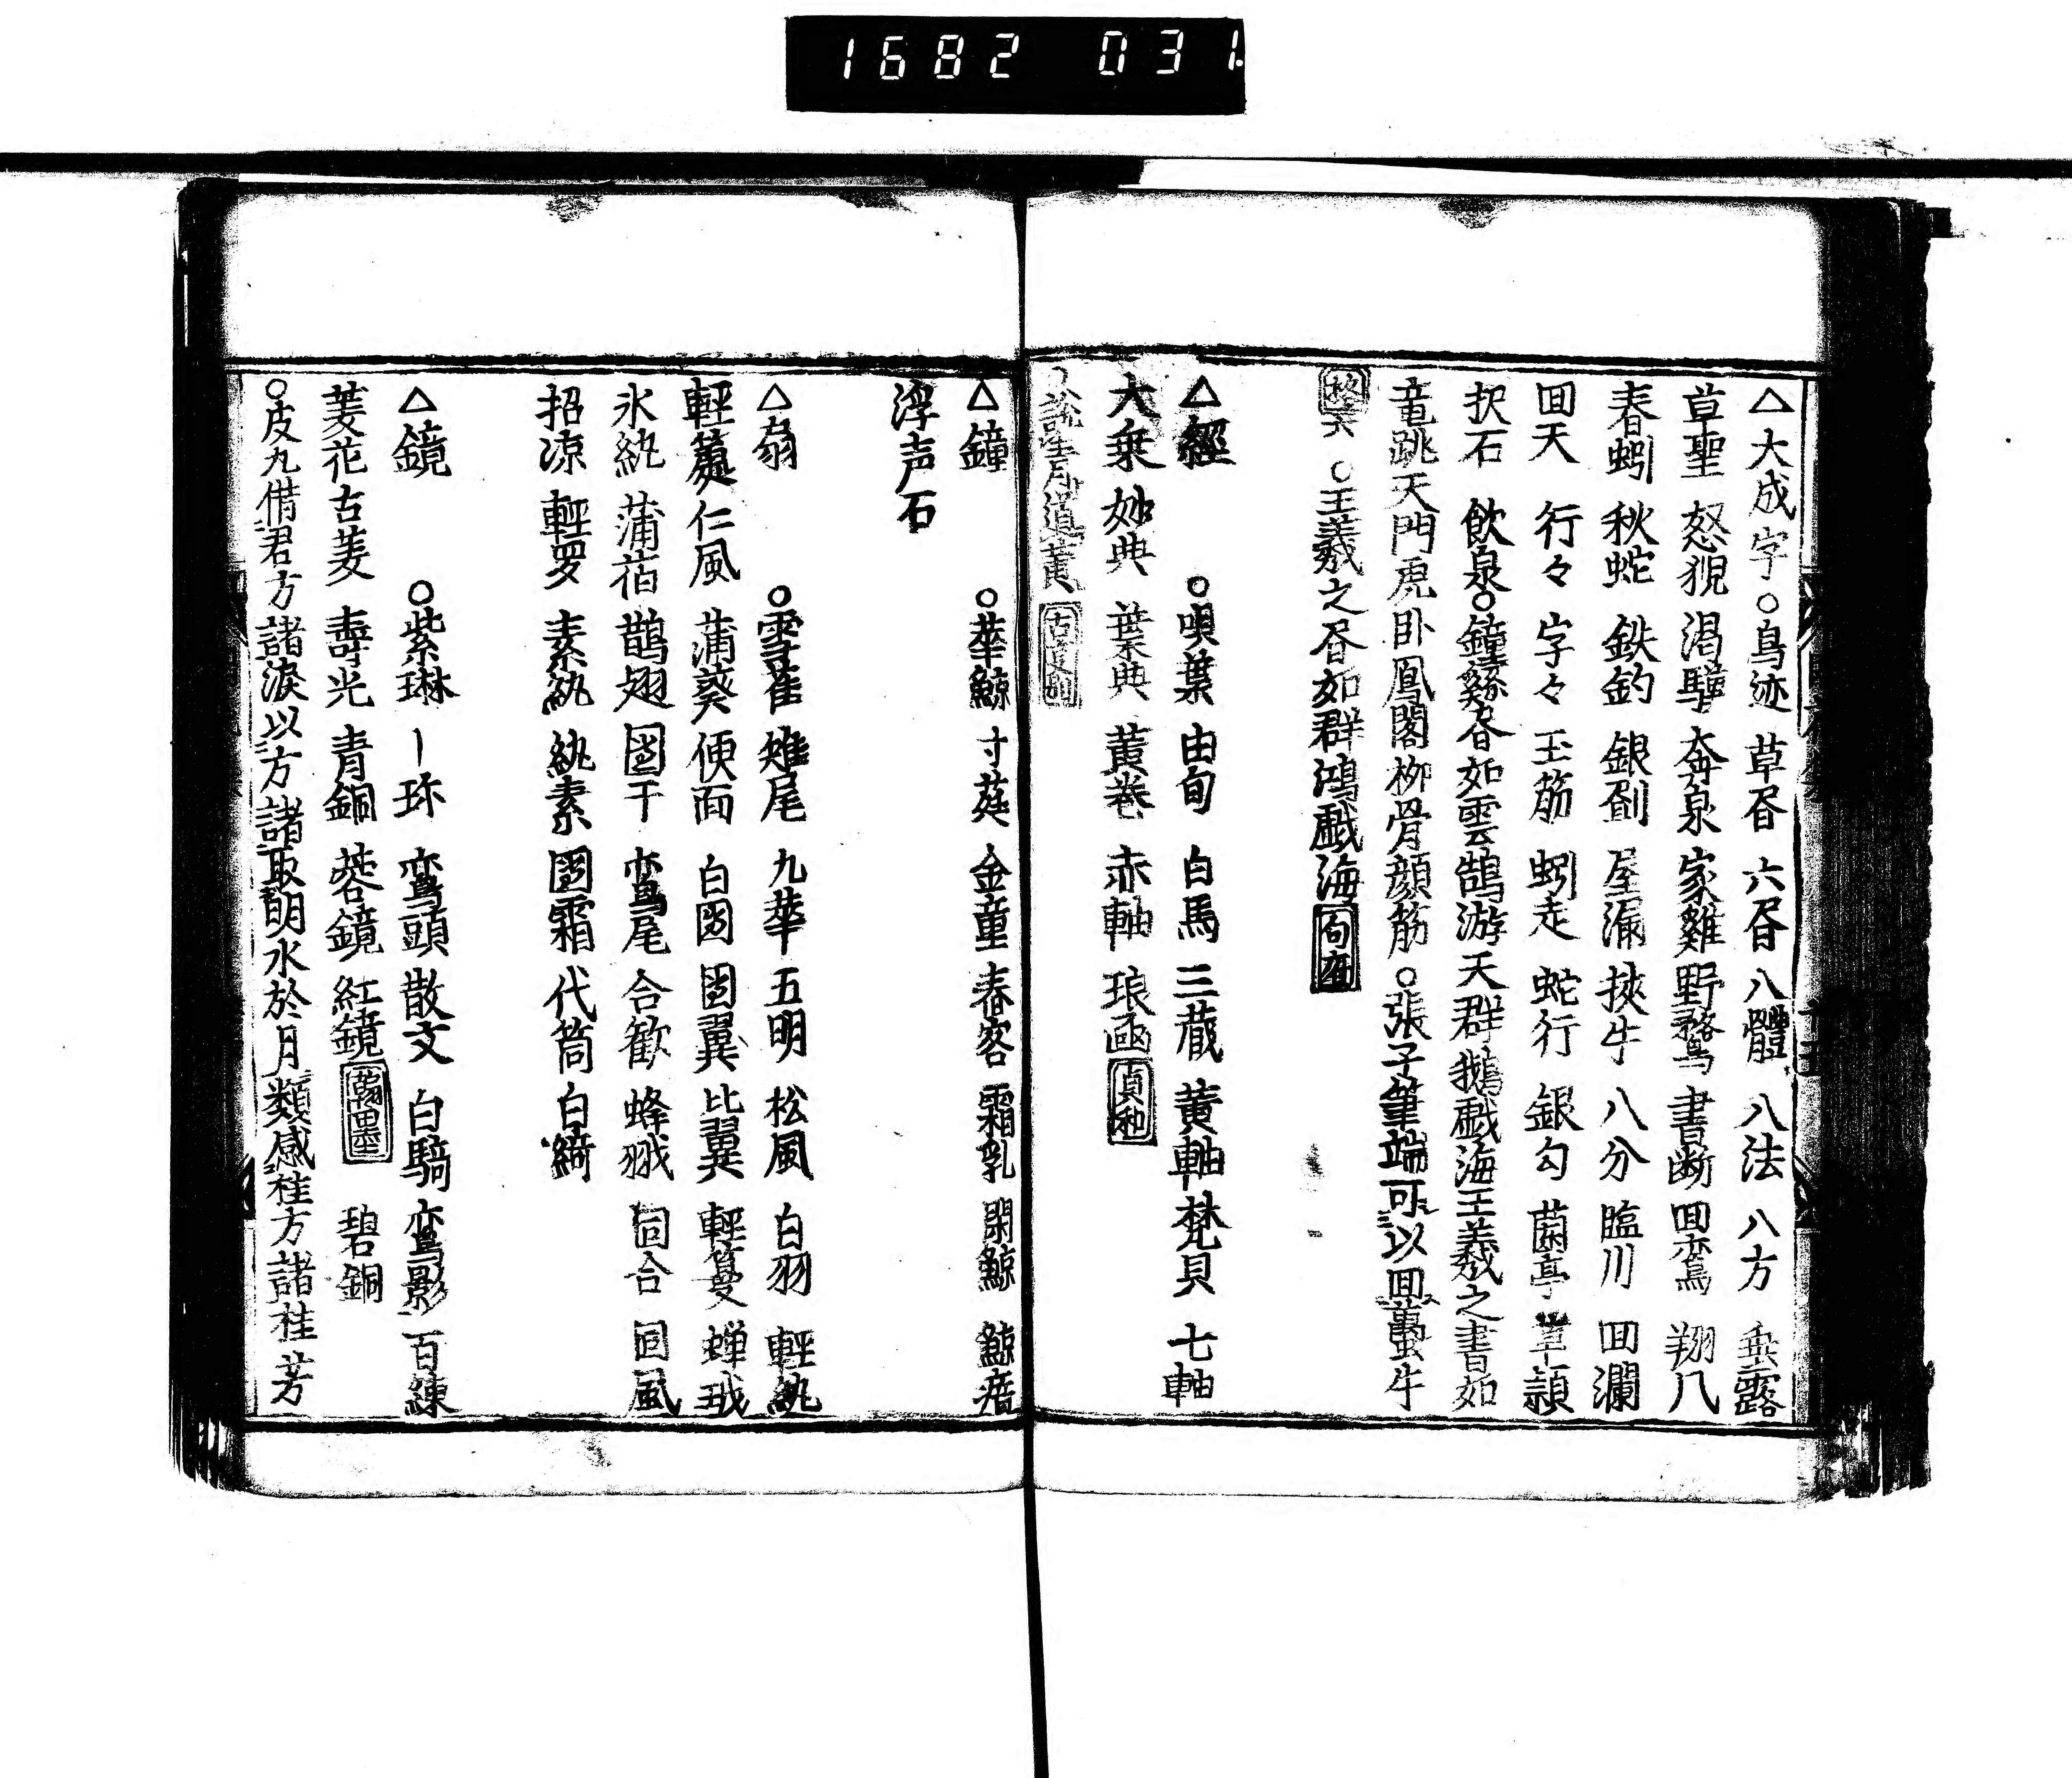 1682 031
△大成字○鳥迹 草昏 六昏 八體 八法 八方 垂露
草聖 怒猊 渇驥 奔泉 家雞 野鶩 書断 囬鸞 翔八
春蚓 秋蛇 鉄釣 銀劃 屋漏 挾牛 八分 臨川 囬瀾
囬天 行々 字々 玉筋 蚓走 蛇行 銀勾 菌亭 草頴
抧石 飲泉○鐘繇昏如雲鵠游天群鵝戯海王羲之書如
竜跳天門虎卧鳳閣柳骨顔筋○張子筆端可以囬萬牛
○王羲之昏如群鴻戯海
△經 ○唄葉 由旬 白馬 三蔵 黄軸 梵貝 七軸
大乗 妙典 葉典 黄巻 赤軸 琅凾 貞和
△鐘 ○華鯨 寸莛 金童 春容 霜乳 閑鯨 鯨瘖
浮声石
△扇 ○雪雀 雉尾 九華 五明 松風 白羽 輕紈
輕箑 仁風 蒲葵 便面 白囷 囷翼 比翼 輕箑 蝉翊
氷紈 蒲葙 鵲翅 團干 鸞尾 合歓 蜂翊 囘合 囘風
招凉 輕罗 素紈 紈素 團霜 代筒 白綺
△鏡 ○紫琳 ｜珎 鸞頭 散文 白騎 鸞影 百練
菱花 古菱 壽光 青銅 蓉鏡 紅鏡 翰墨 碧銅
○皮九借君方諸淚以方諸取明水於月類感桂方諸桂芳